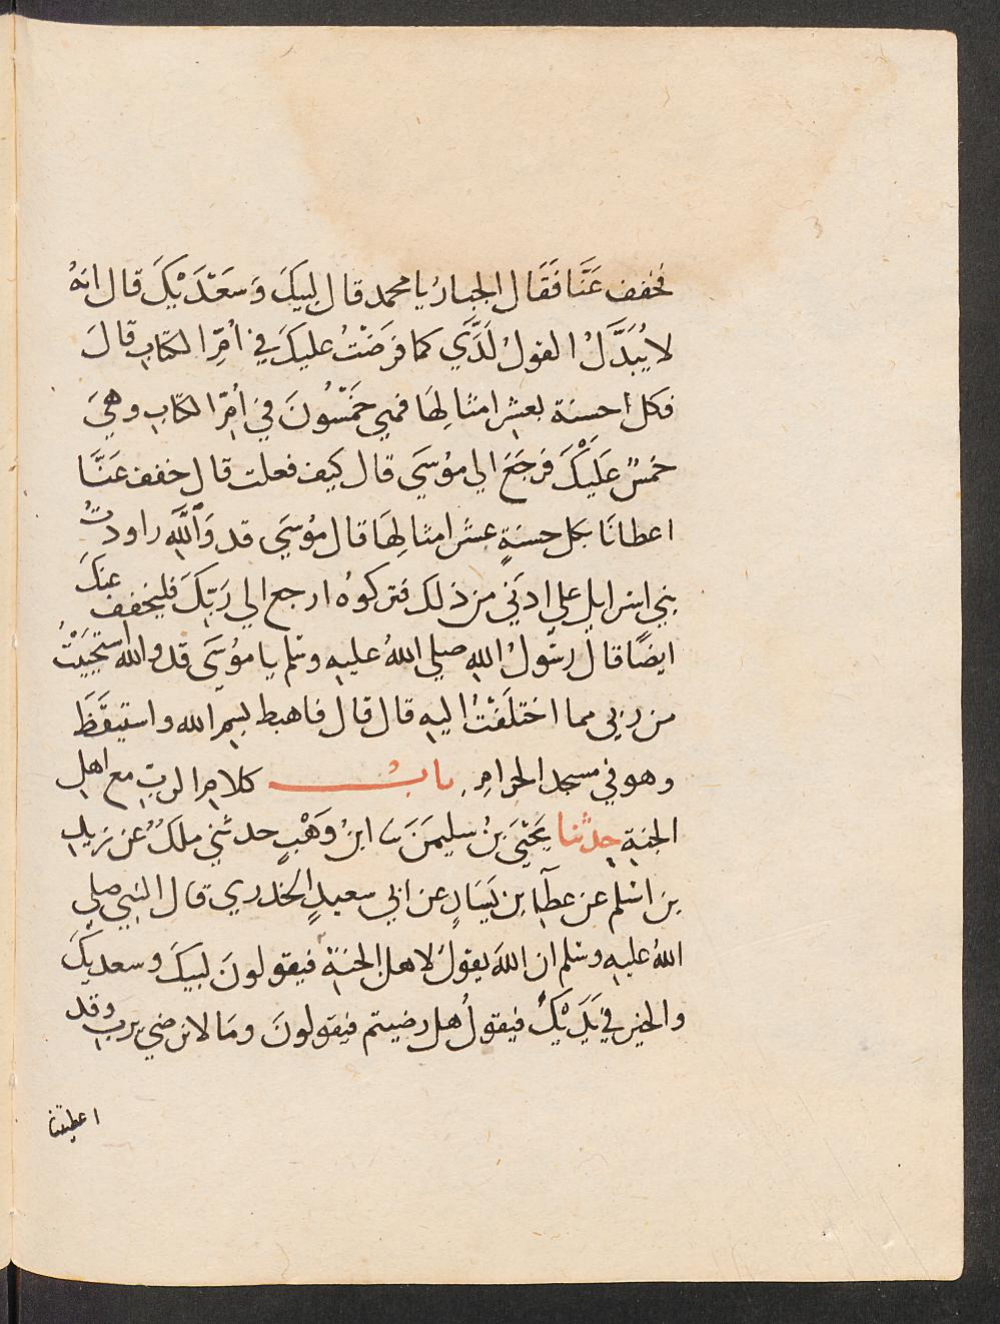 فخفف عَنَّا فَقَال الجبارُ يا محمد قال لبيكَ وَسعَدَيْكَ قال انهُ
لا يُبَدَّلُ القولُ لَدَّي كما فرَضْتُ عليكَ في أُمِّ الكتابِ قالَ
فكل حسنة بعشر امثالِهَا فهي خَمْسُونَ في أمّ الكتابِ وهيَ
خمسٌ عَلَيْكَ فرجَعَ الي موُسيَ قال كيف فعلت قال خفف عَنَّا
اعطانَا بكل حسنةٍ عشر امثالِهَا قال موُسيَ قد وَاَللَّهِ راودتُ
بني اسرايل علي ادنَي من ذلك فتركوُه ارجع الي رَبّكَ فليخفف عنكَ
ايضًا قال رسُولُ اللهِ صلي اللهُ عليهِ وسلم يا موُسيَ قد والله استحْيَيْتُ
من ربي مما اختلَفْتُ اليهِ قال قال فاهبط بسمِ الله واستيقَظَ
وهو في مسجد الحرامِ بابُ كلامِ الربِّ مع اهلِ
الجنةِ حدثنا يَحْيَي بنُ سليمَنَ نا ابنُ وَهْبٍ حدثني ملكٌ عن زيدِ
بن اسْلم عن عطآءِ بن يَسَارٍ عن ابي سعيدٍ الخدري قال النبي صلي
اللهُ عليهِ وسلم ان اللهَ يقولُ لاهل الجنةِ فيقولونَ لبيكَ وسعديكَ
والخير في يَدَيْكَ فيقولُ هل رضيتم فيقولونَ ومَا لا نرضي يربِ وقد
اعطيتنا